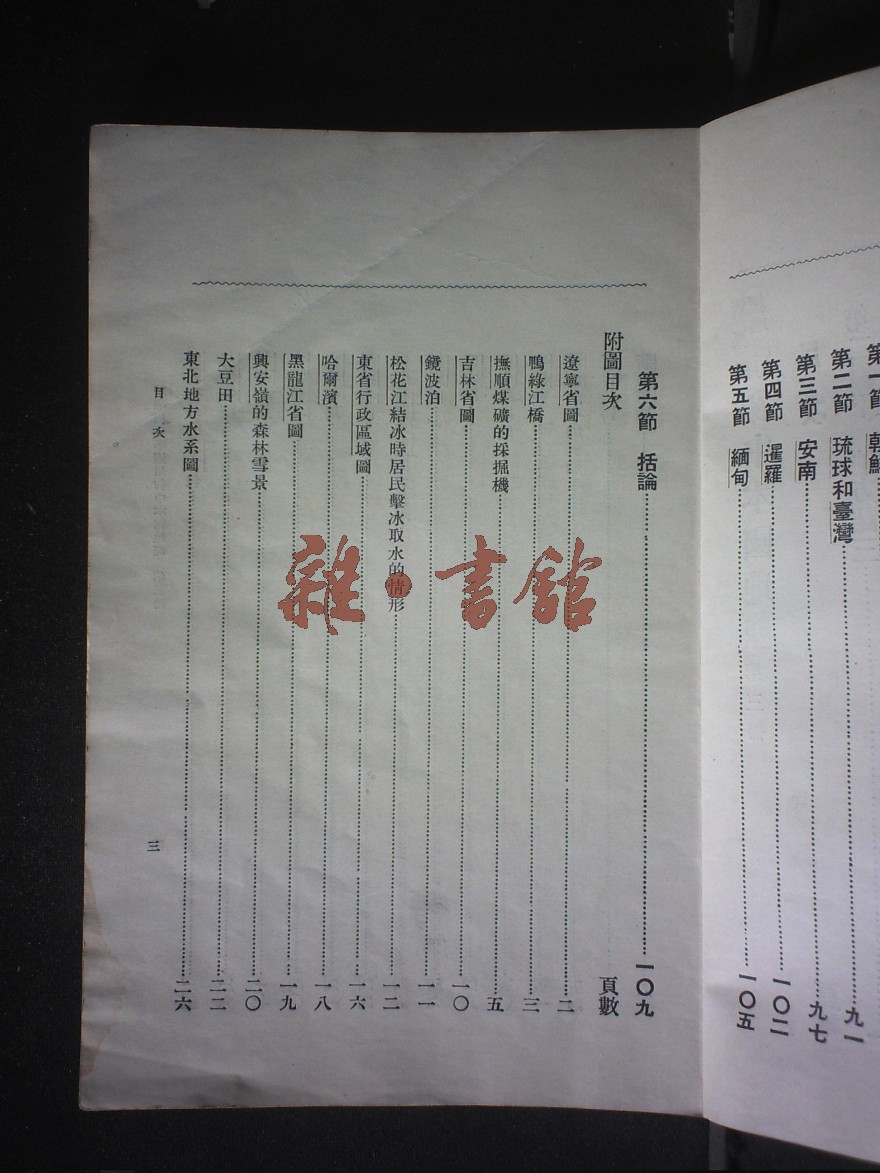 第一節 朝鮮
第二節 琉球和臺灣 九一
第三節 安南 九七
第四節 暹羅 一〇二
第五節 緬甸 一〇五
第六節 括論 一〇九
附圖目次 頁數
遼寧省圖 二
鴨綠江橋 三
撫順煤礦的採掘機 五
吉林省圖 一〇
鏡波泊 一一
松花江結冰時居民擊冰取水的情形 一二
東省行政區域圖 一六
哈爾濱 一八
黑龍江省圖 一九
興安嶺的森林雪景 二〇
大豆田 二二
東北地方水系圖 二六
目次 三
雜·書館